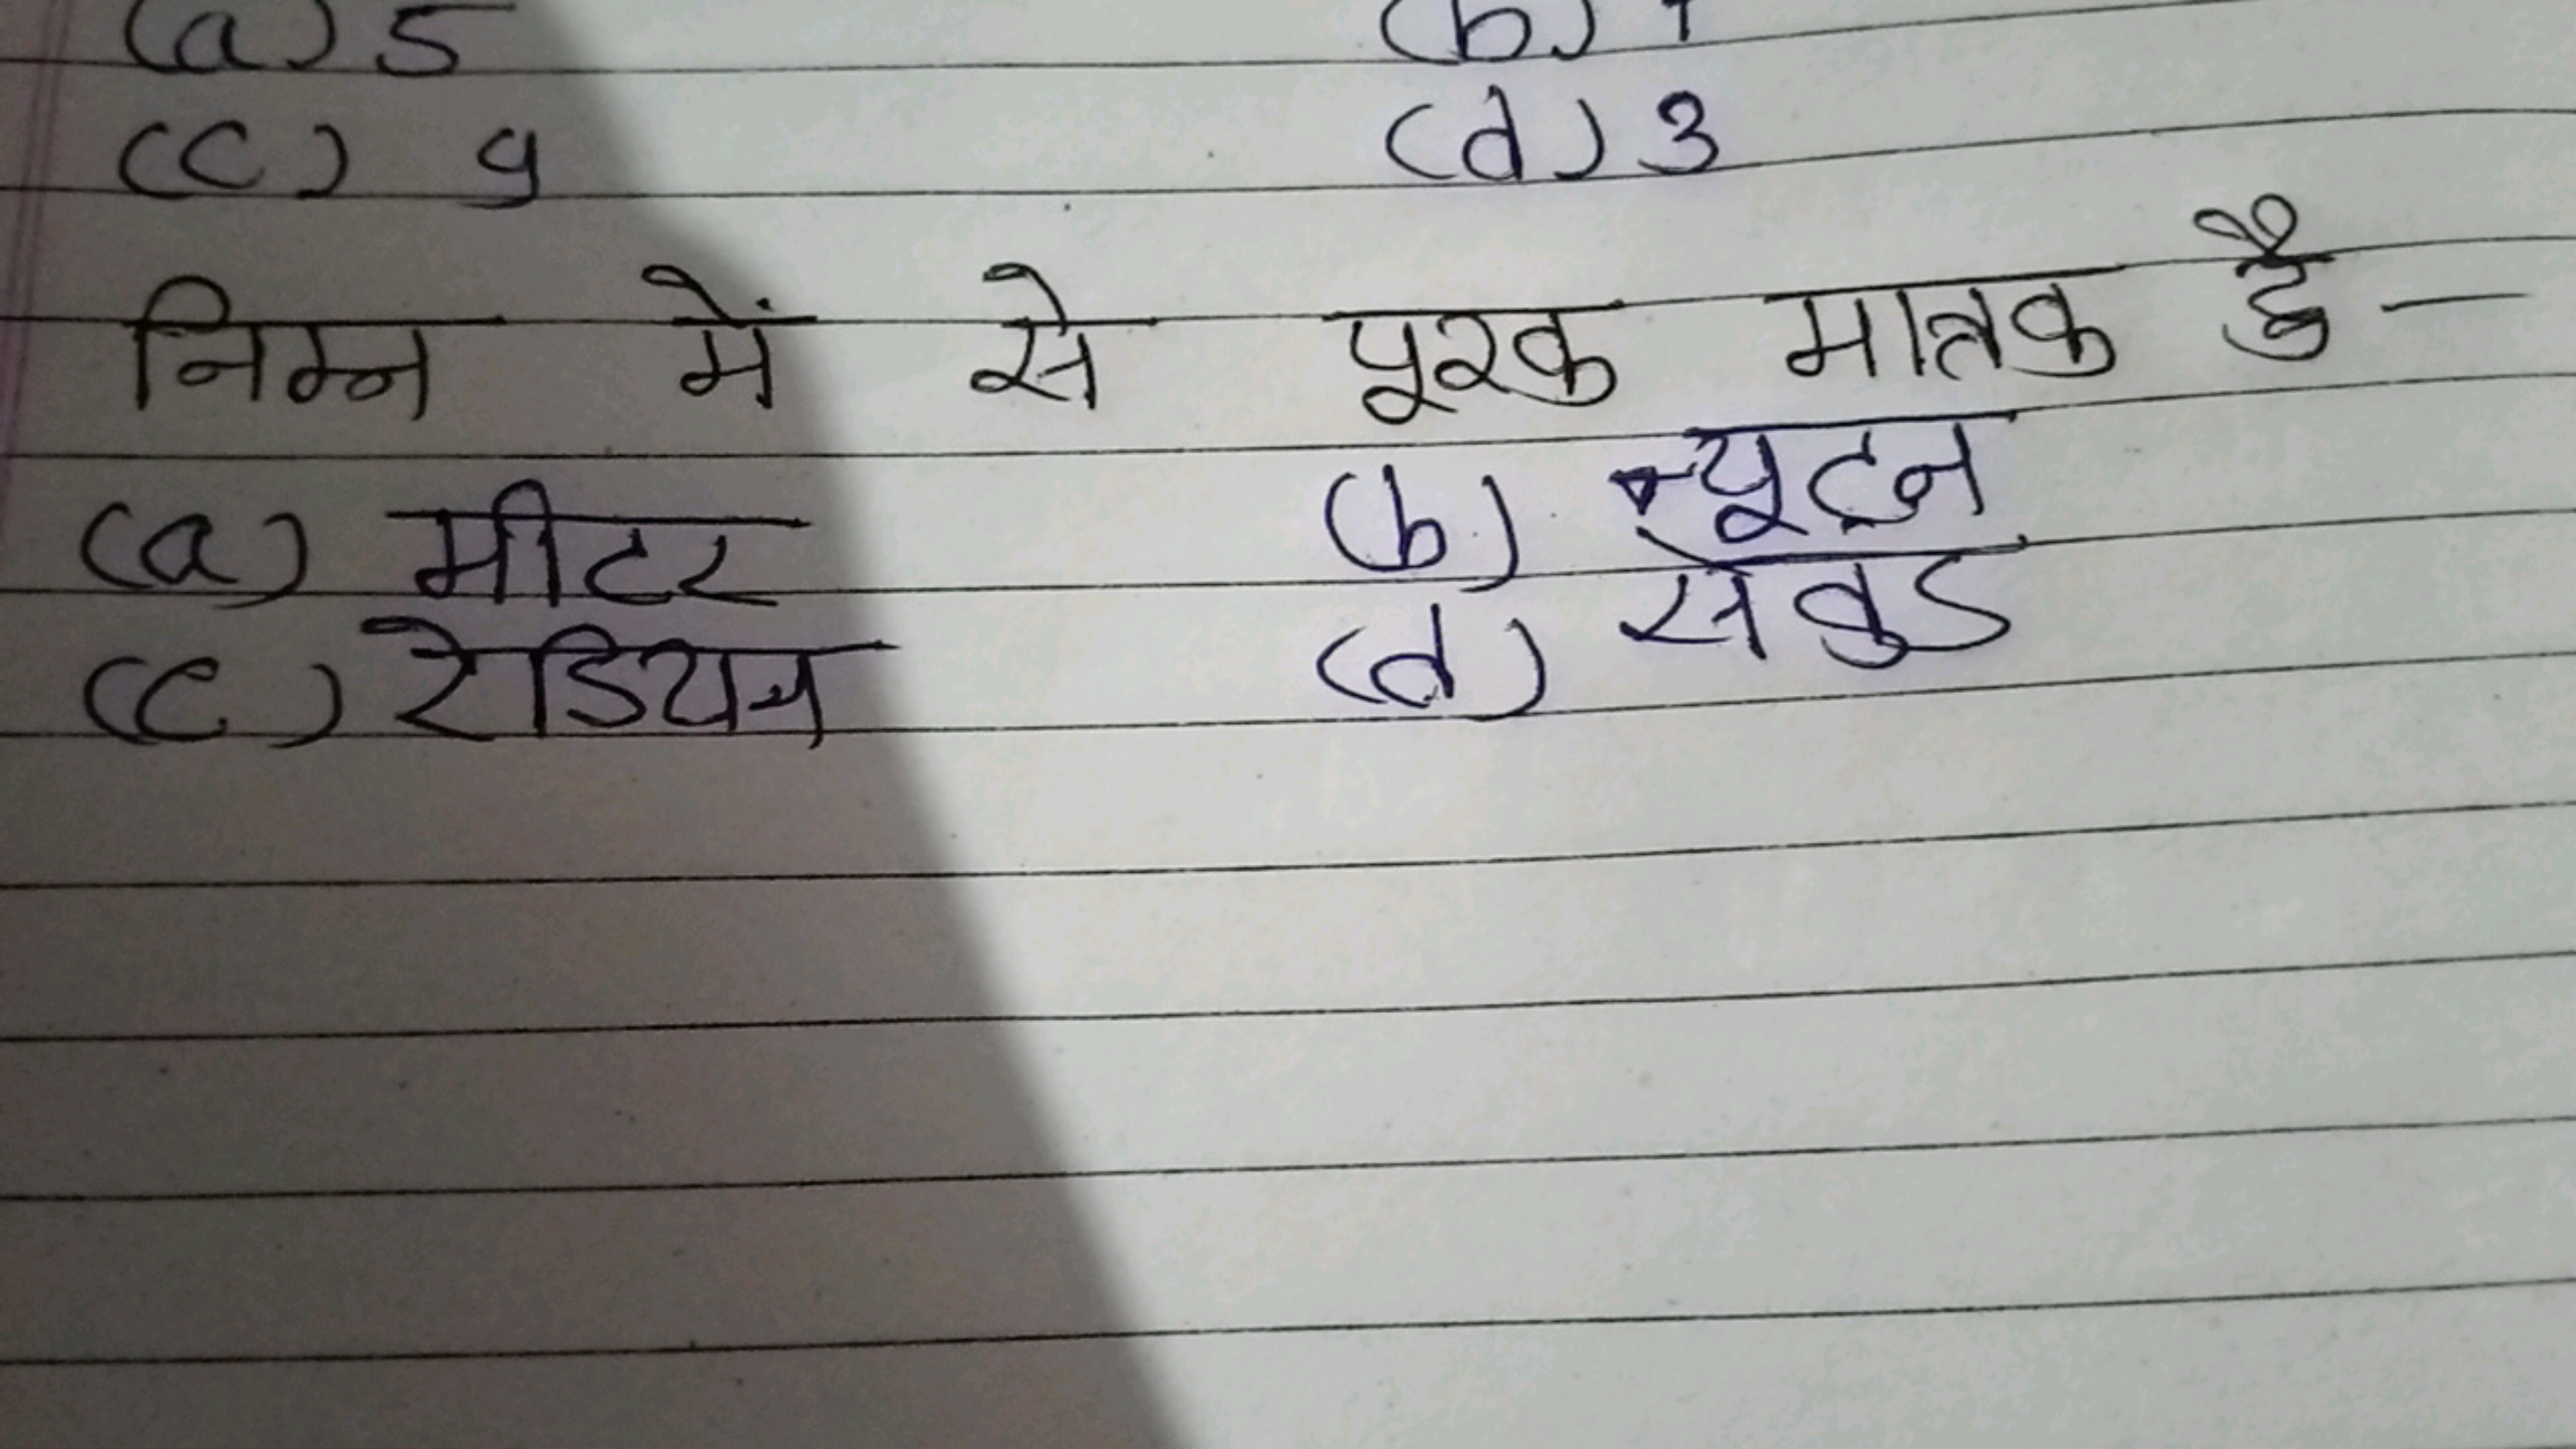 (a) 5 (b)
(c) 9 (d) 3
निम्न में से पूरक मात्रक है -
(a) मीटर (b) न्यूटन
(c) रेडियन (d) सेकंड